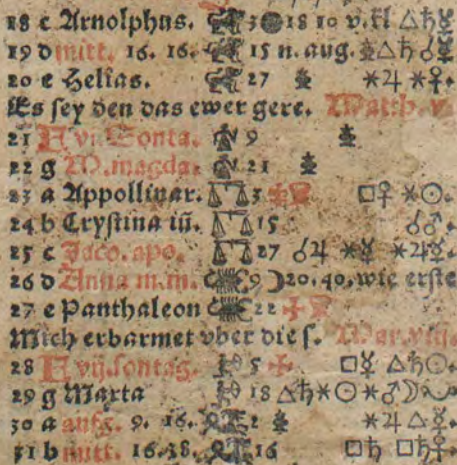 18 c Arnolphus. 3 18 10 v. kl △♄☿
19 d mitt. 16. 16. 15 n. aug. △♄ ☌☿
20 e Helias. 27 ⚹♃ ⚹♀.
Es sey den das ewer gere. Matth. v.
21 F vi. Sonta. 9
22 g M. magda. 21
23 a Appollinar. ♎ 3 □♀ ⚹☉.
24 b Crystina iñ. ♎ 15 ☌♂.
25 c Jaco. apo. ♎ 27 ☌♃ ⚹☿ ⚹♃☿.
26 d Anna m. m. 9 ☽20. 40. wie erste
27 e Panthaleon 22
Mich erbarmet vber die s. Mar. viij.
28 F vij. sontag. 5 □☿ △♄☉.
29 g Marta 18 △♄⚹☉⚹♂☽
30 a aufg. 9. 16. 2 ⚹♃ △☿.
31 b mitt. 16. 38. 16 □♄ □♄☿